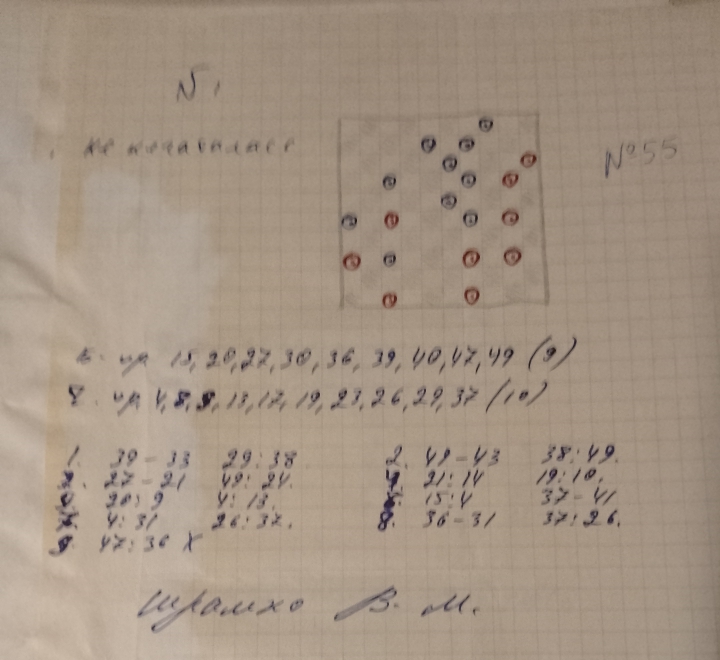 N 1
не печаталась
№55
Б. пр 15, 20, 27, 30, 36, 39, 40, 47, 49 (9)
Ч. пр 4, 8, 9, 13, 17, 19, 23, 26, 29, 37 (10)
1. 39-33 29:38 2. 49-43 38:49.
3. 27-21 49:24. 4. 21:14 19:10.
5. 20:9 4:13. 6. 15:4 37-41
7. 4:31 26:37. 8. 36-31 37:26.
9. 47:36 X
Шрамко В. М.